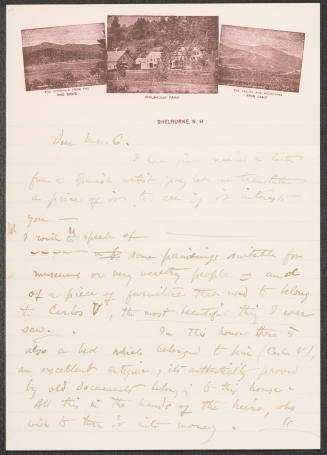 THE ANDROSCOGGIN FROM THE PINE BANKS
PHILBROOK FARM
THE VALLEY AND MOUNTAINS FROM CABOT
SHELBURNE, N. H
Dear Mrs. G.
I have just received a letter
from a Spanish artist, let me translate
a piece of it, to see if it interests
you —
I wish to speak of
some paintings suitable for
museums or very wealthy people — and
of a piece of furniture that used to belong
to Carlos V, the most beautiful thing I ever
saw. In this house there is
also a bed which belonged to him (Carlos V),
an excellent antique, it's authenticity proved
by old documents belonging to this house —
All this is in the hands of the heirs, who
wish to turn it into money.